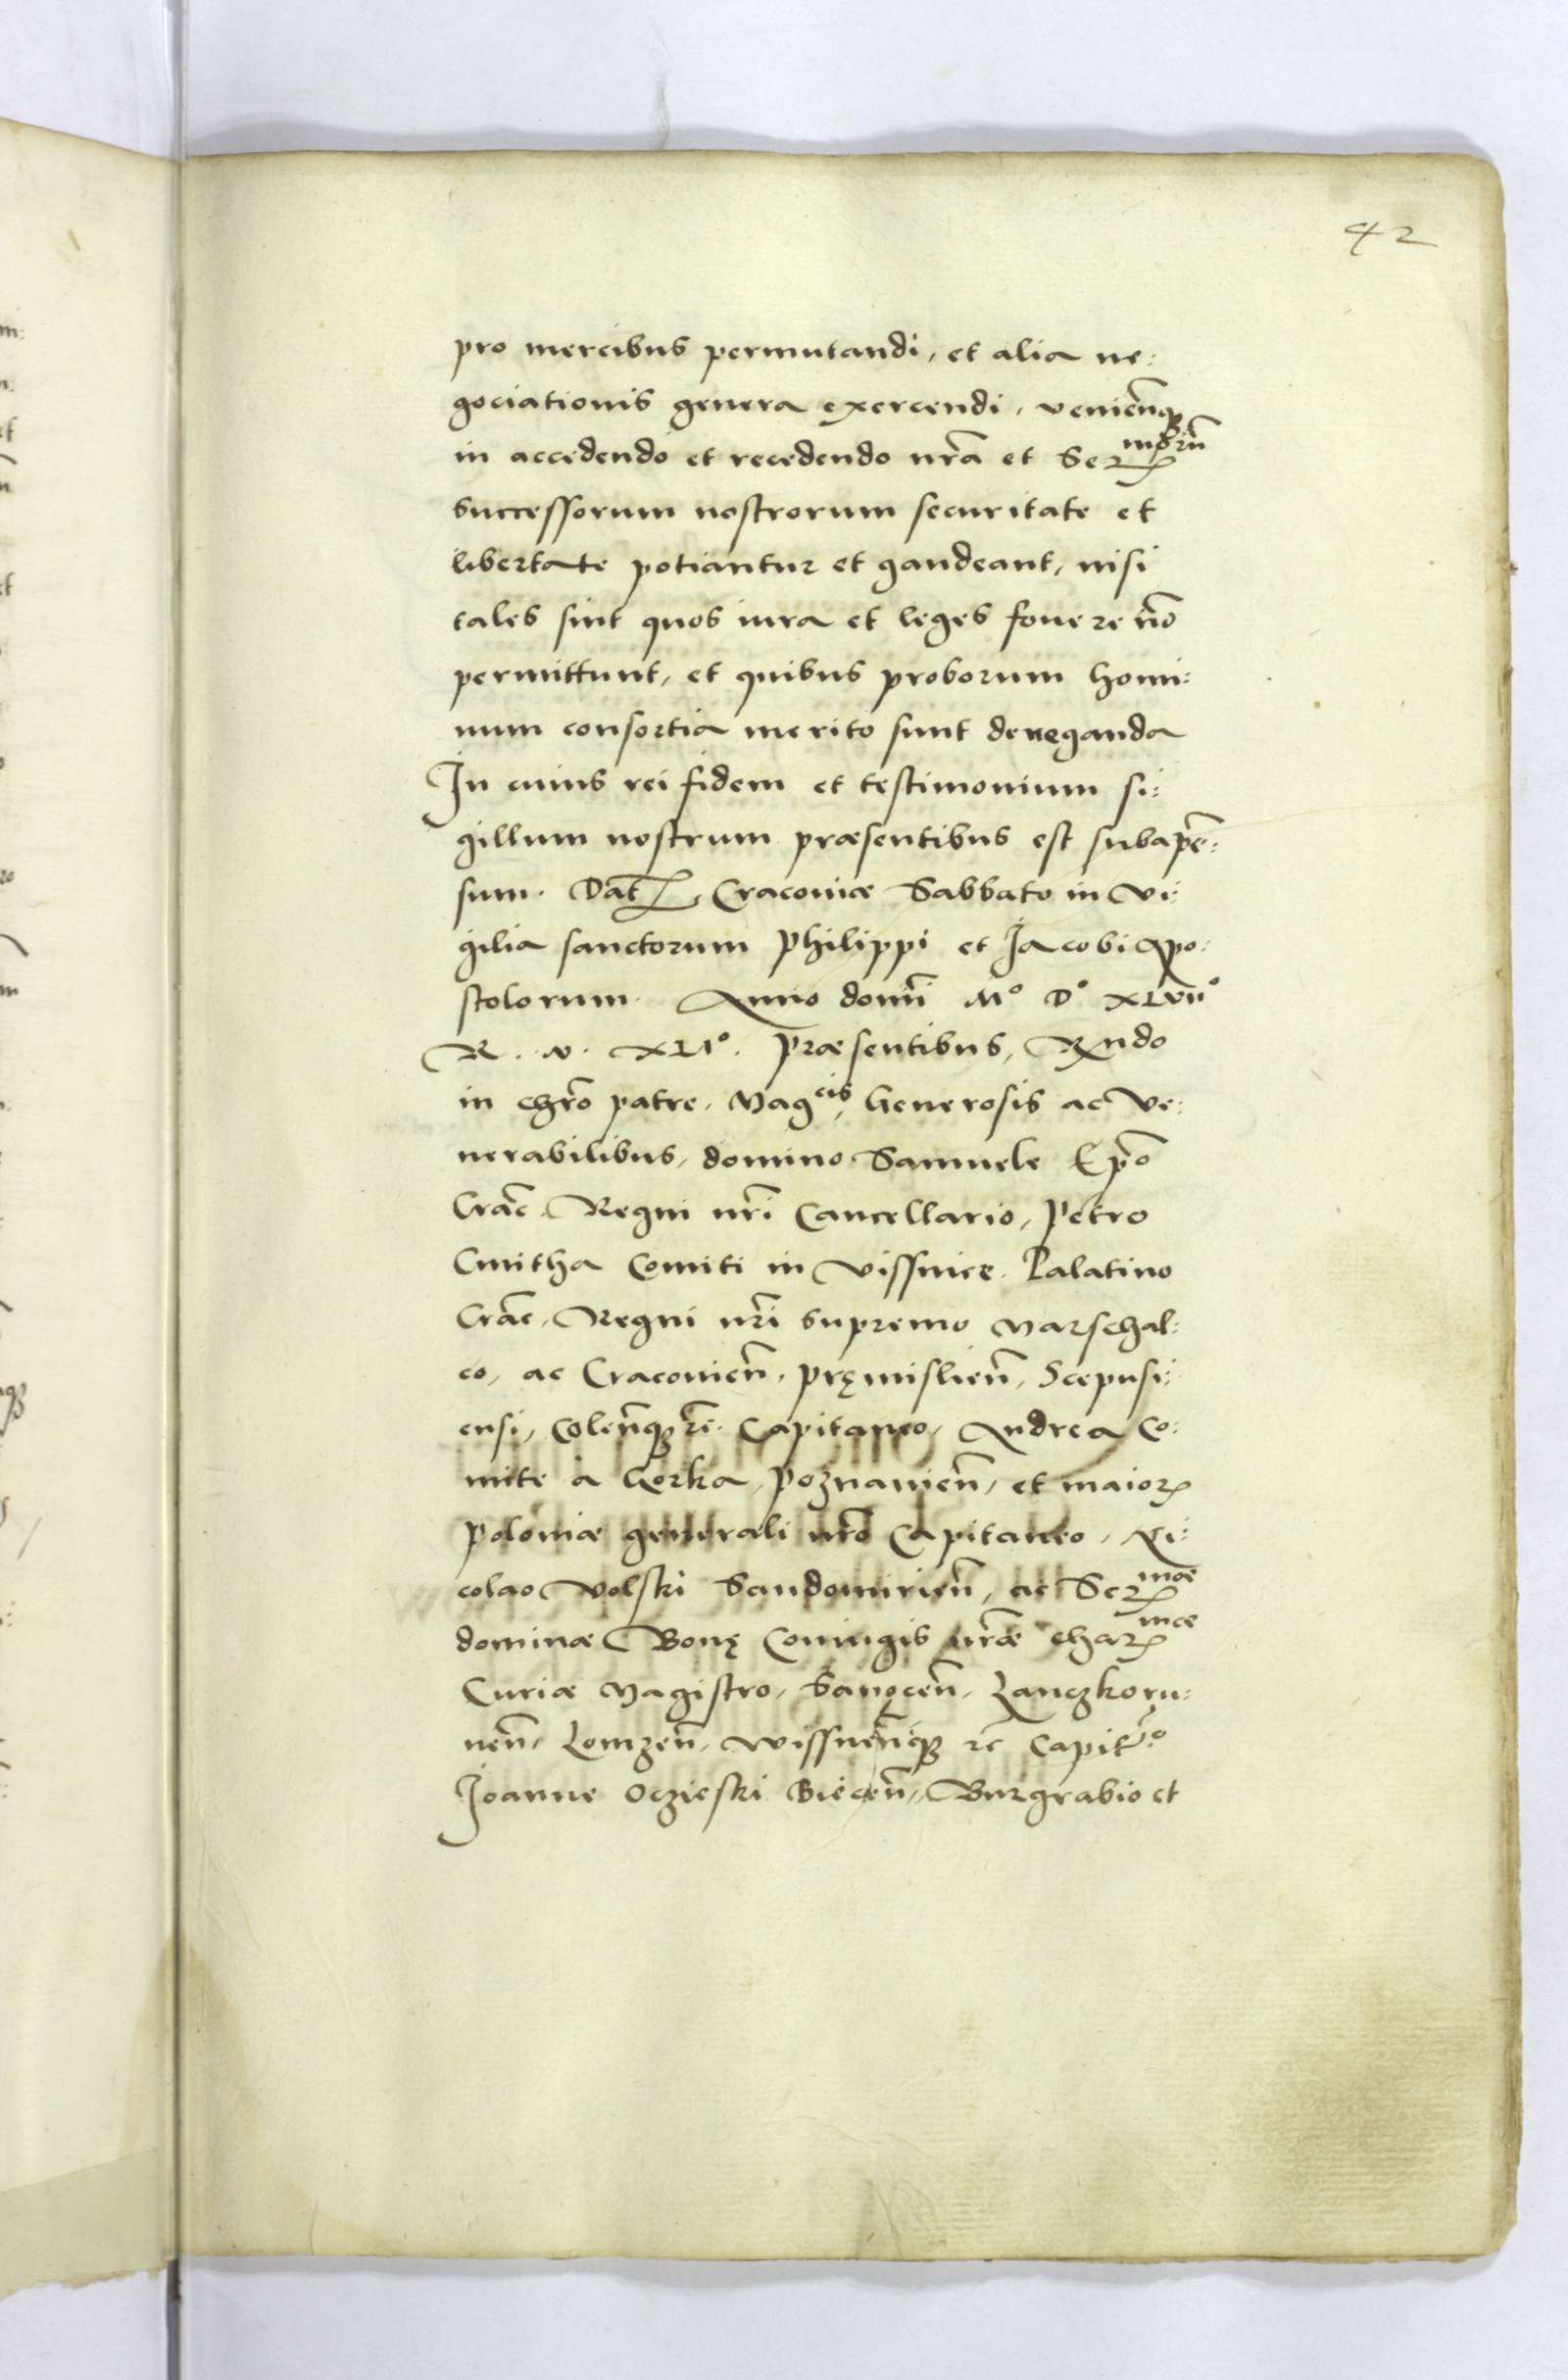 42
pro mercibus permutandi, et alia ne:
gociationis genera exercendi, venienꝗ̃
in accedendo et recedendo nrã et Ser^morũ
successorum nostrorum securitate et
libertate potiantur et gaudeant, nisi
tales sint quos iura et leges fouere nõ
permittunt, et quibus proborum homi:
num consortia merito sunt deneganda
In cuius rei fidem et testimonium si:
gillum nostrum præsentibus est subapẽ:
sum. Dat̃ Cracoviæ Sabbato in vi:
gilia sanctorum Philippi et Jacobi Apo:
stolorum. Anno domĩ M° D° XLVII°
R. N. XLI°. Præsentibus, Rndo
in chrõ patre, Mag^cis, Generosis ac ve:
nerabilibus, domino Samuele Epõ
Crac̃. Regni nrĩ Cancellario, Petro
Cmitha Comiti in Vissnice. Palatino
Crac̃, Regni nrĩ supremo Marschal:
co, ac Cracovieñ, Pręmislieñ, Scepusi:
ensi, Coleñqȝ zc̃. Capitaneo, Andrea Co:
mite a Gorka, Poznanieñ, et maior
Poloniæ generali nrõ Capitaneo, Ni:
colao Volski Sandomirieñ, ac Ser^mæ
dominæ Bonę Coniugis nrãe char^mæ
Curiæ Magistro, Sanoceñ, Lanczkoru:
neñ, Lomzeñ, Wissneñqȝ zc̃ Capit^o
Joanne Oczieski Bieceñ, Burgrabio et